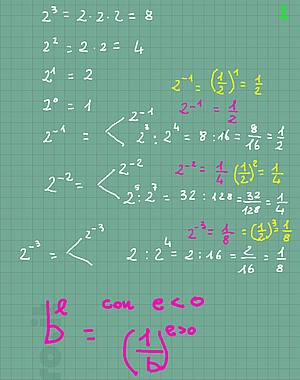 1
2³ = 2 · 2 · 2 = 8
2² = 2 · 2 = 4
2¹ = 2
2⁻¹ = (1/2)¹ = 1/2
2⁰ = 1
2⁻¹ = 1/2
2⁻¹ =
2⁻¹
2³ : 2⁴ = 8 : 16 = 8/16 = 1/2
2⁻² =
2⁻²
2⁻² = 1/4 (1/2)² = 1/4
2⁵ : 2⁷ = 32 : 128 = 32/128 = 1/4
2⁻³ = 1/8 = (1/2)³ = 1/8
2⁻³ =
2⁻³
2 : 2⁴ = 2 : 16 = 2/16 = 1/8
bᵉ con e < 0
= (1/b)ᵉ˃⁰